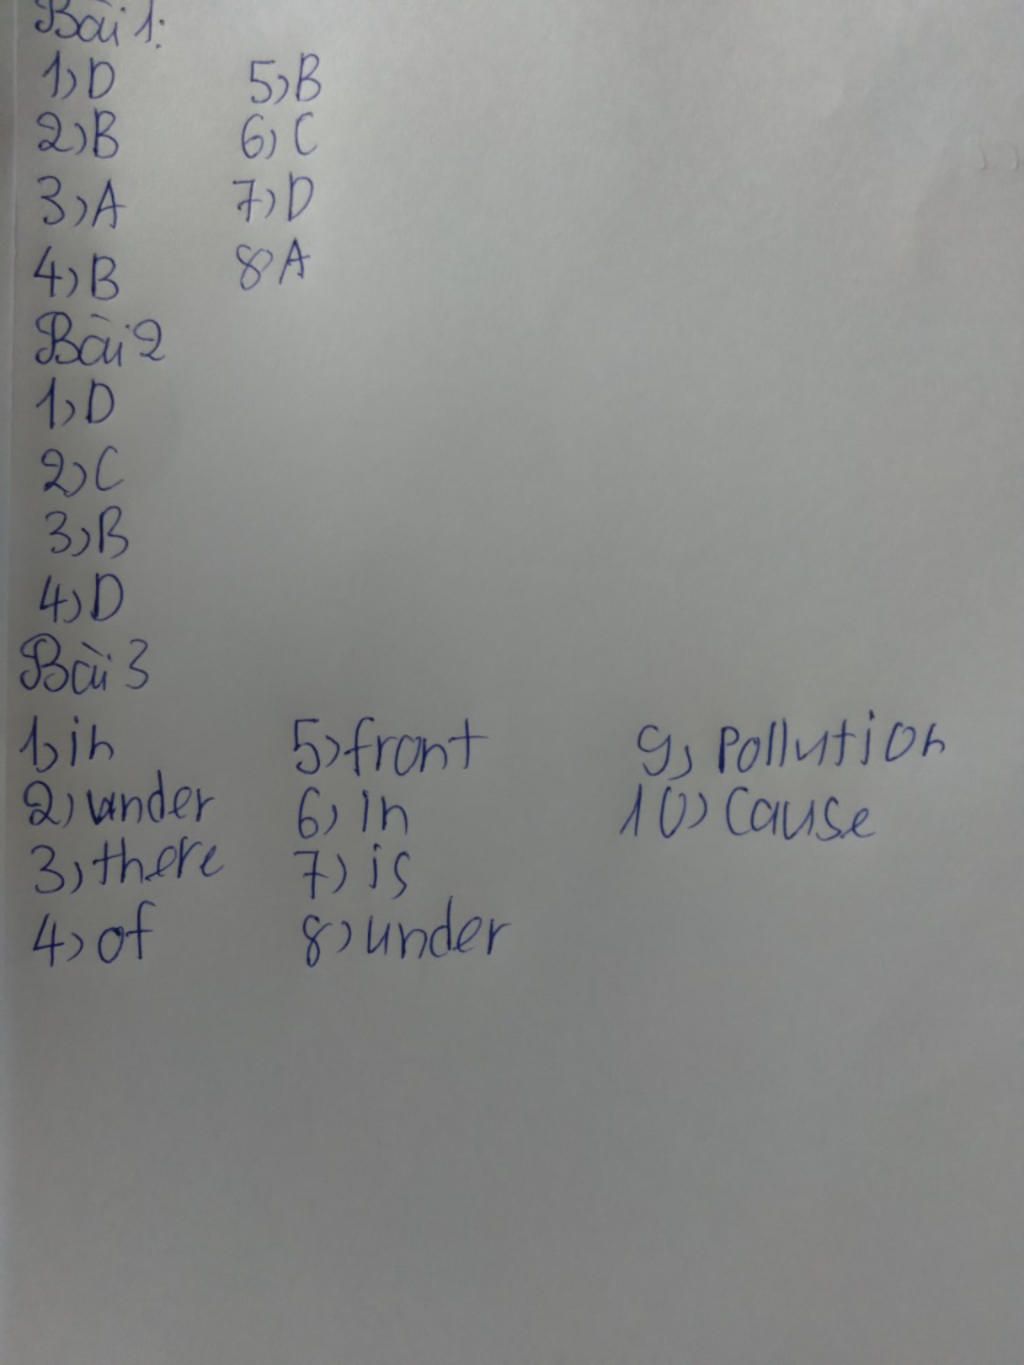 Bài 1:
1) D 5) B
2) B 6) C
3) A 7) D
4) B 8) A
Bài 2
1) D
2) C
3) B
4) D
Bài 3
1) in 5) front 9) pollution
2) under 6) in 10) Cause
3) there 7) is
4) of 8) under